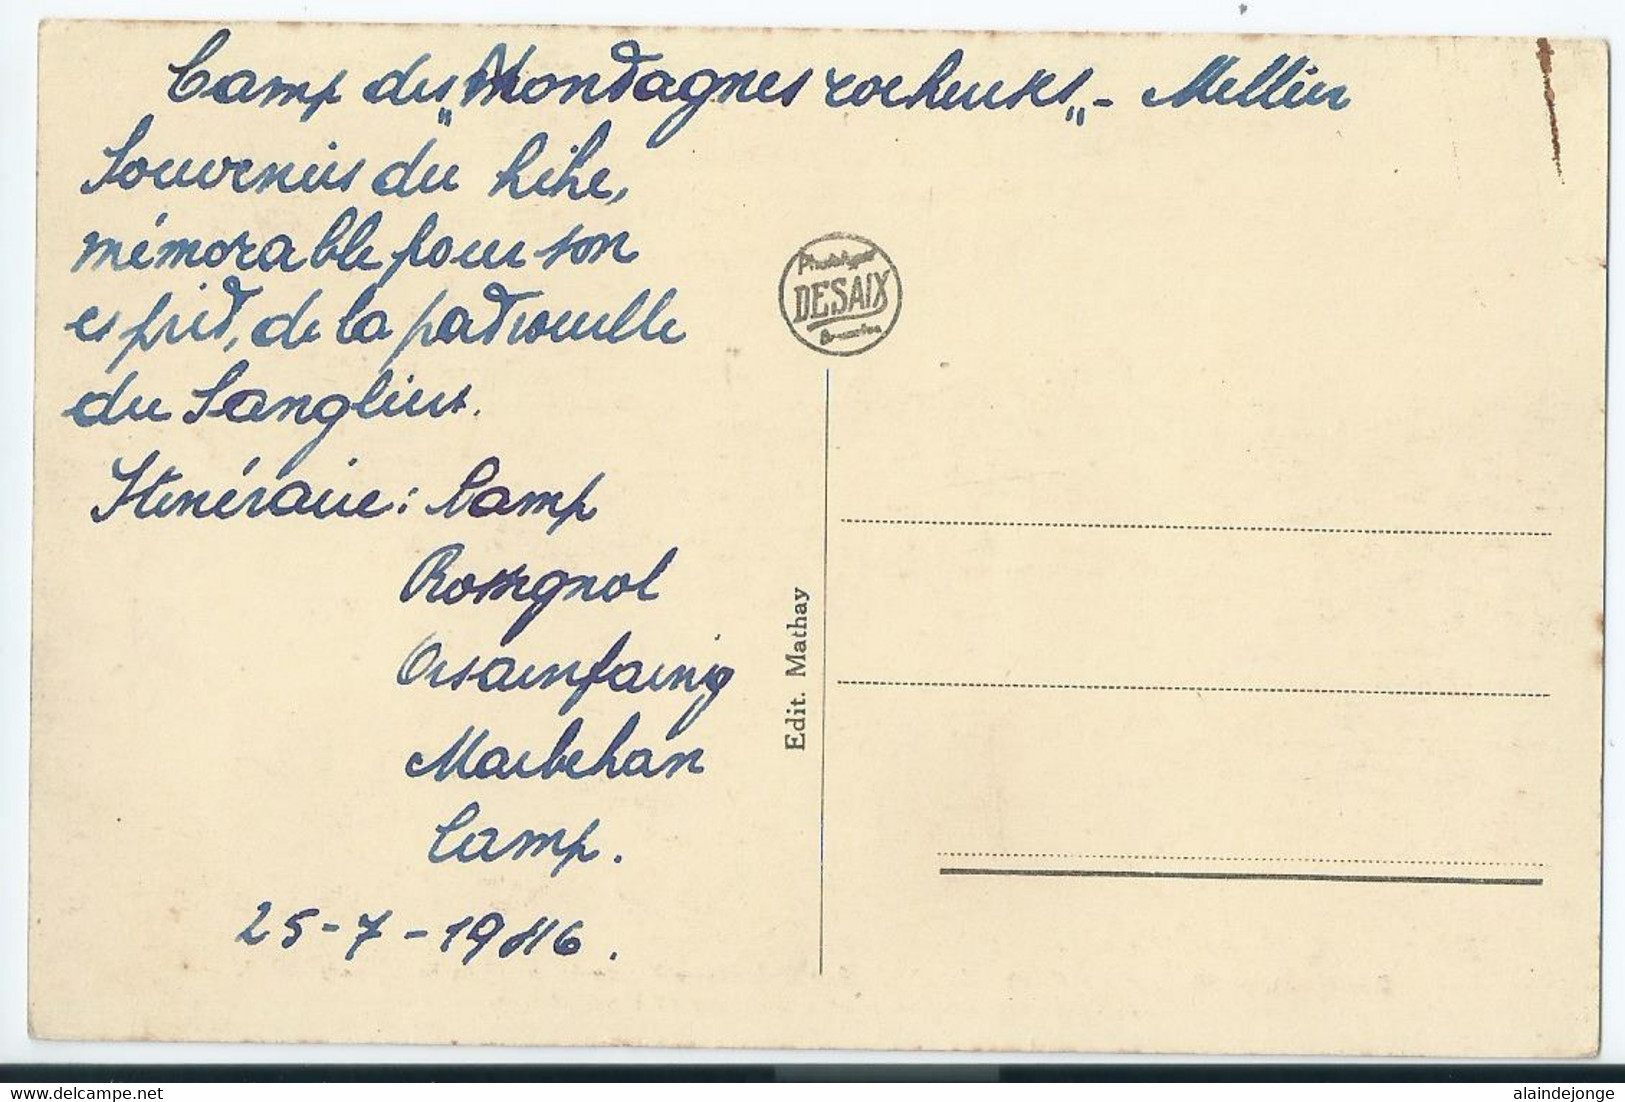 Camp des „Montagnes rocheuses„ - Mellier
Souvenirs du hike,
mémorable pour son
esprit, de la patrouille
du Sanglier.
Itinéraire: Camp
Rossignol
Orsainfaing
Marbehan
Camp.
25-7-1946.
Phototypie
DESAIX
Bruxelles
Edit. Mathay
alaindejonge